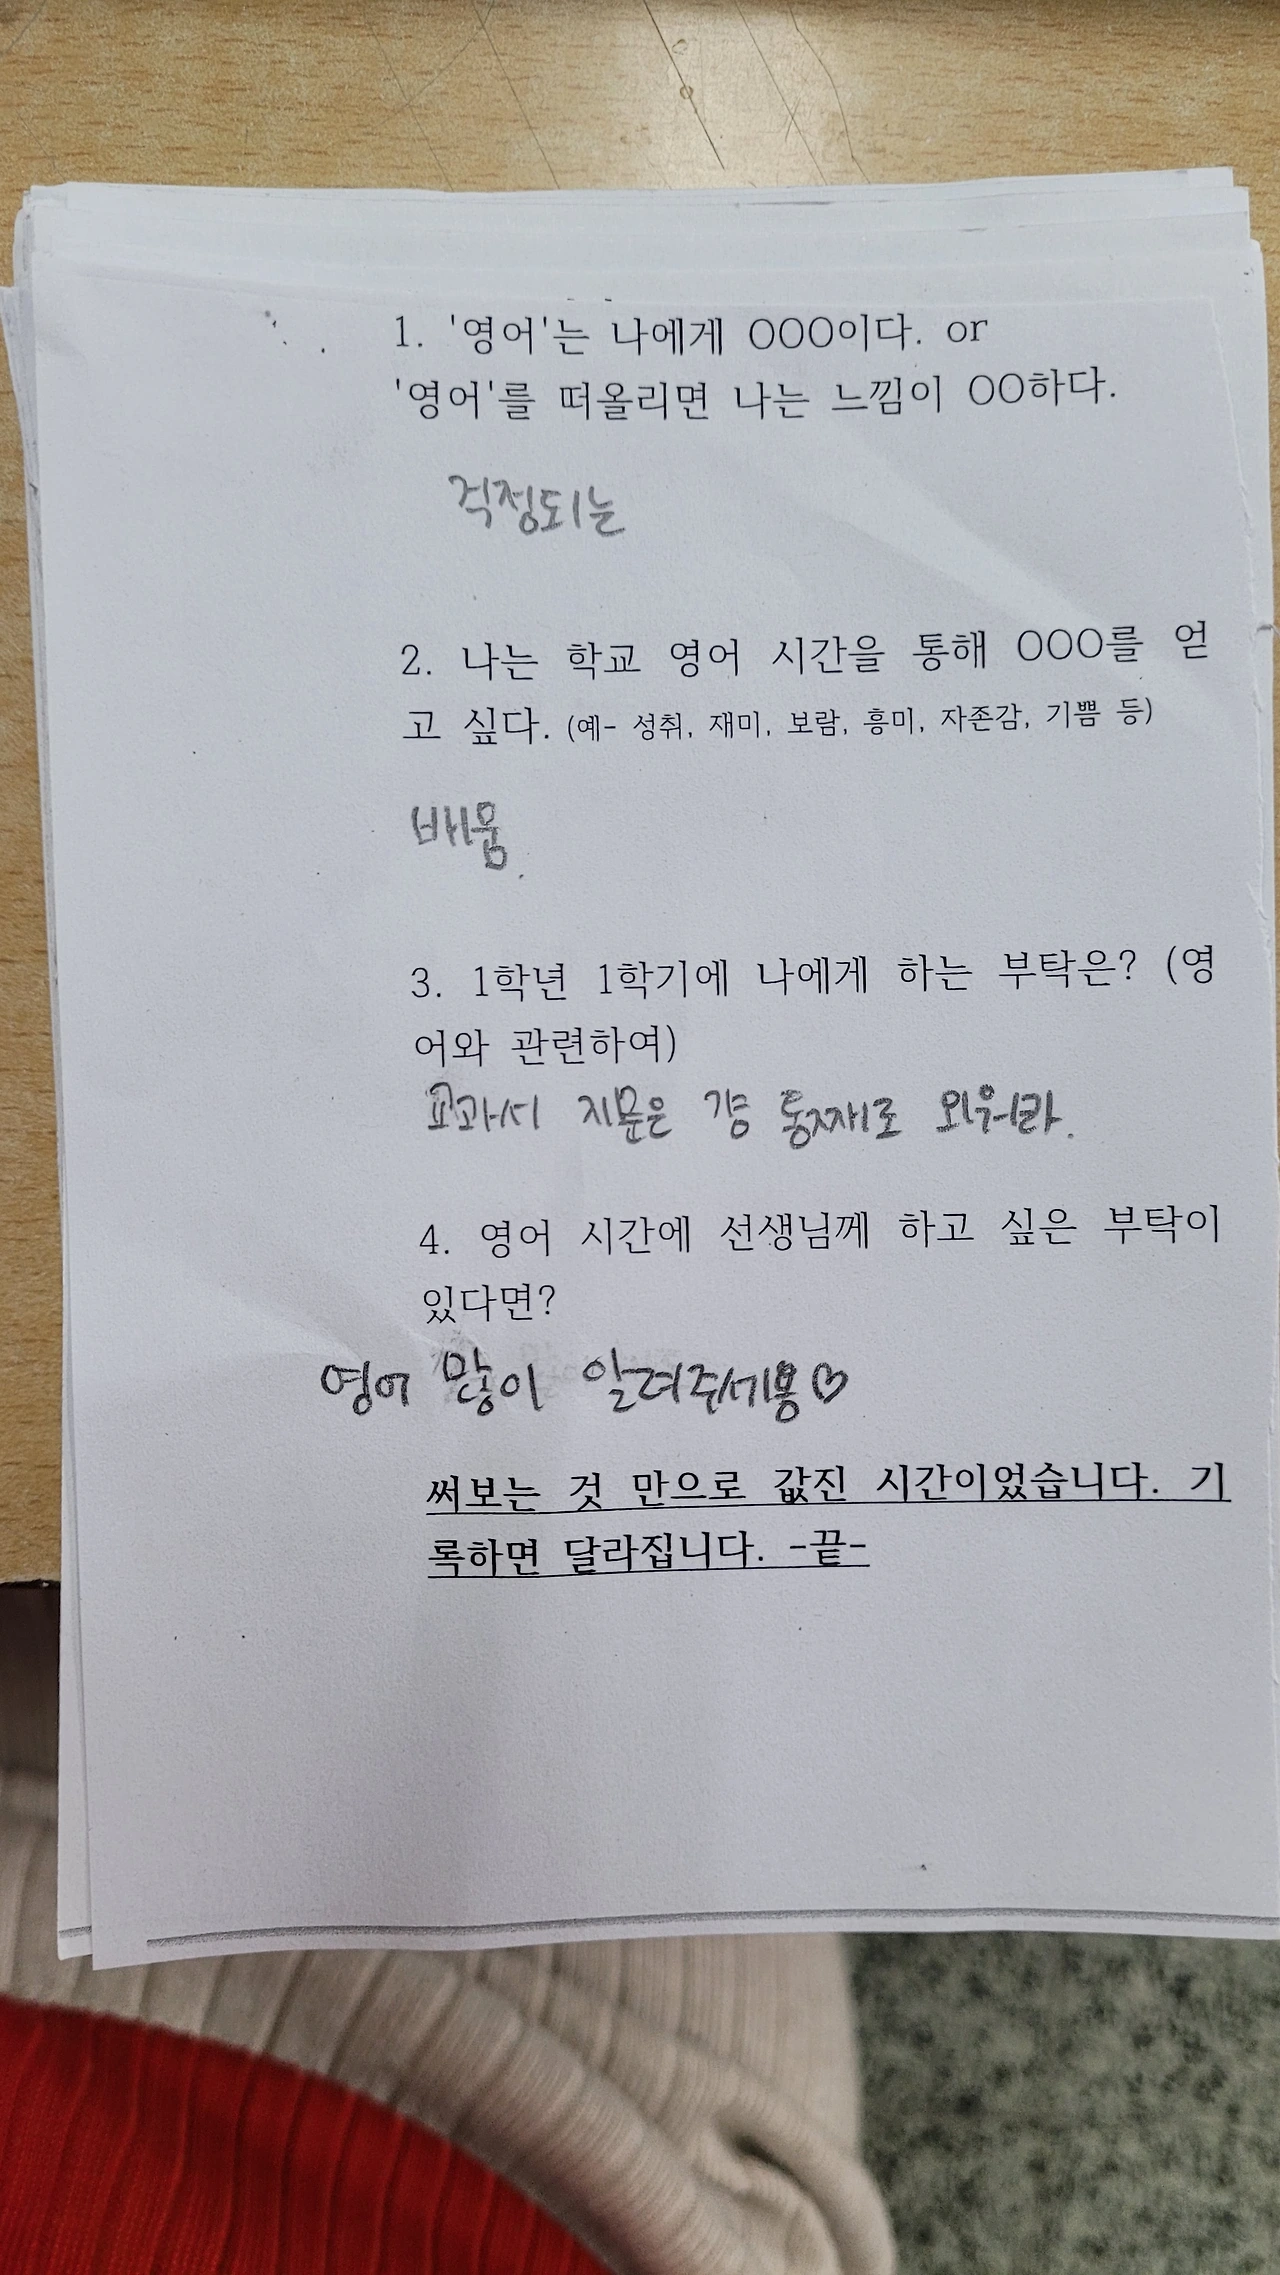 1. '영어'는 나에게 OOO이다. or
'영어'를 떠올리면 나는 느낌이 OO하다.
걱정되는
2. 나는 학교 영어 시간을 통해 OOO를 얻
고 싶다. (예- 성취, 재미, 보람, 흥미, 자존감, 기쁨 등)
배움.
3. 1학년 1학기에 나에게 하는 부탁은? (영
어와 관련하여)
교과서 지문은 걍 통째로 외워라.
4. 영어 시간에 선생님께 하고 싶은 부탁이
있다면?
영어 많이 알려주세용♡
써보는 것 만으로 값진 시간이었습니다. 기
록하면 달라집니다. -끝-